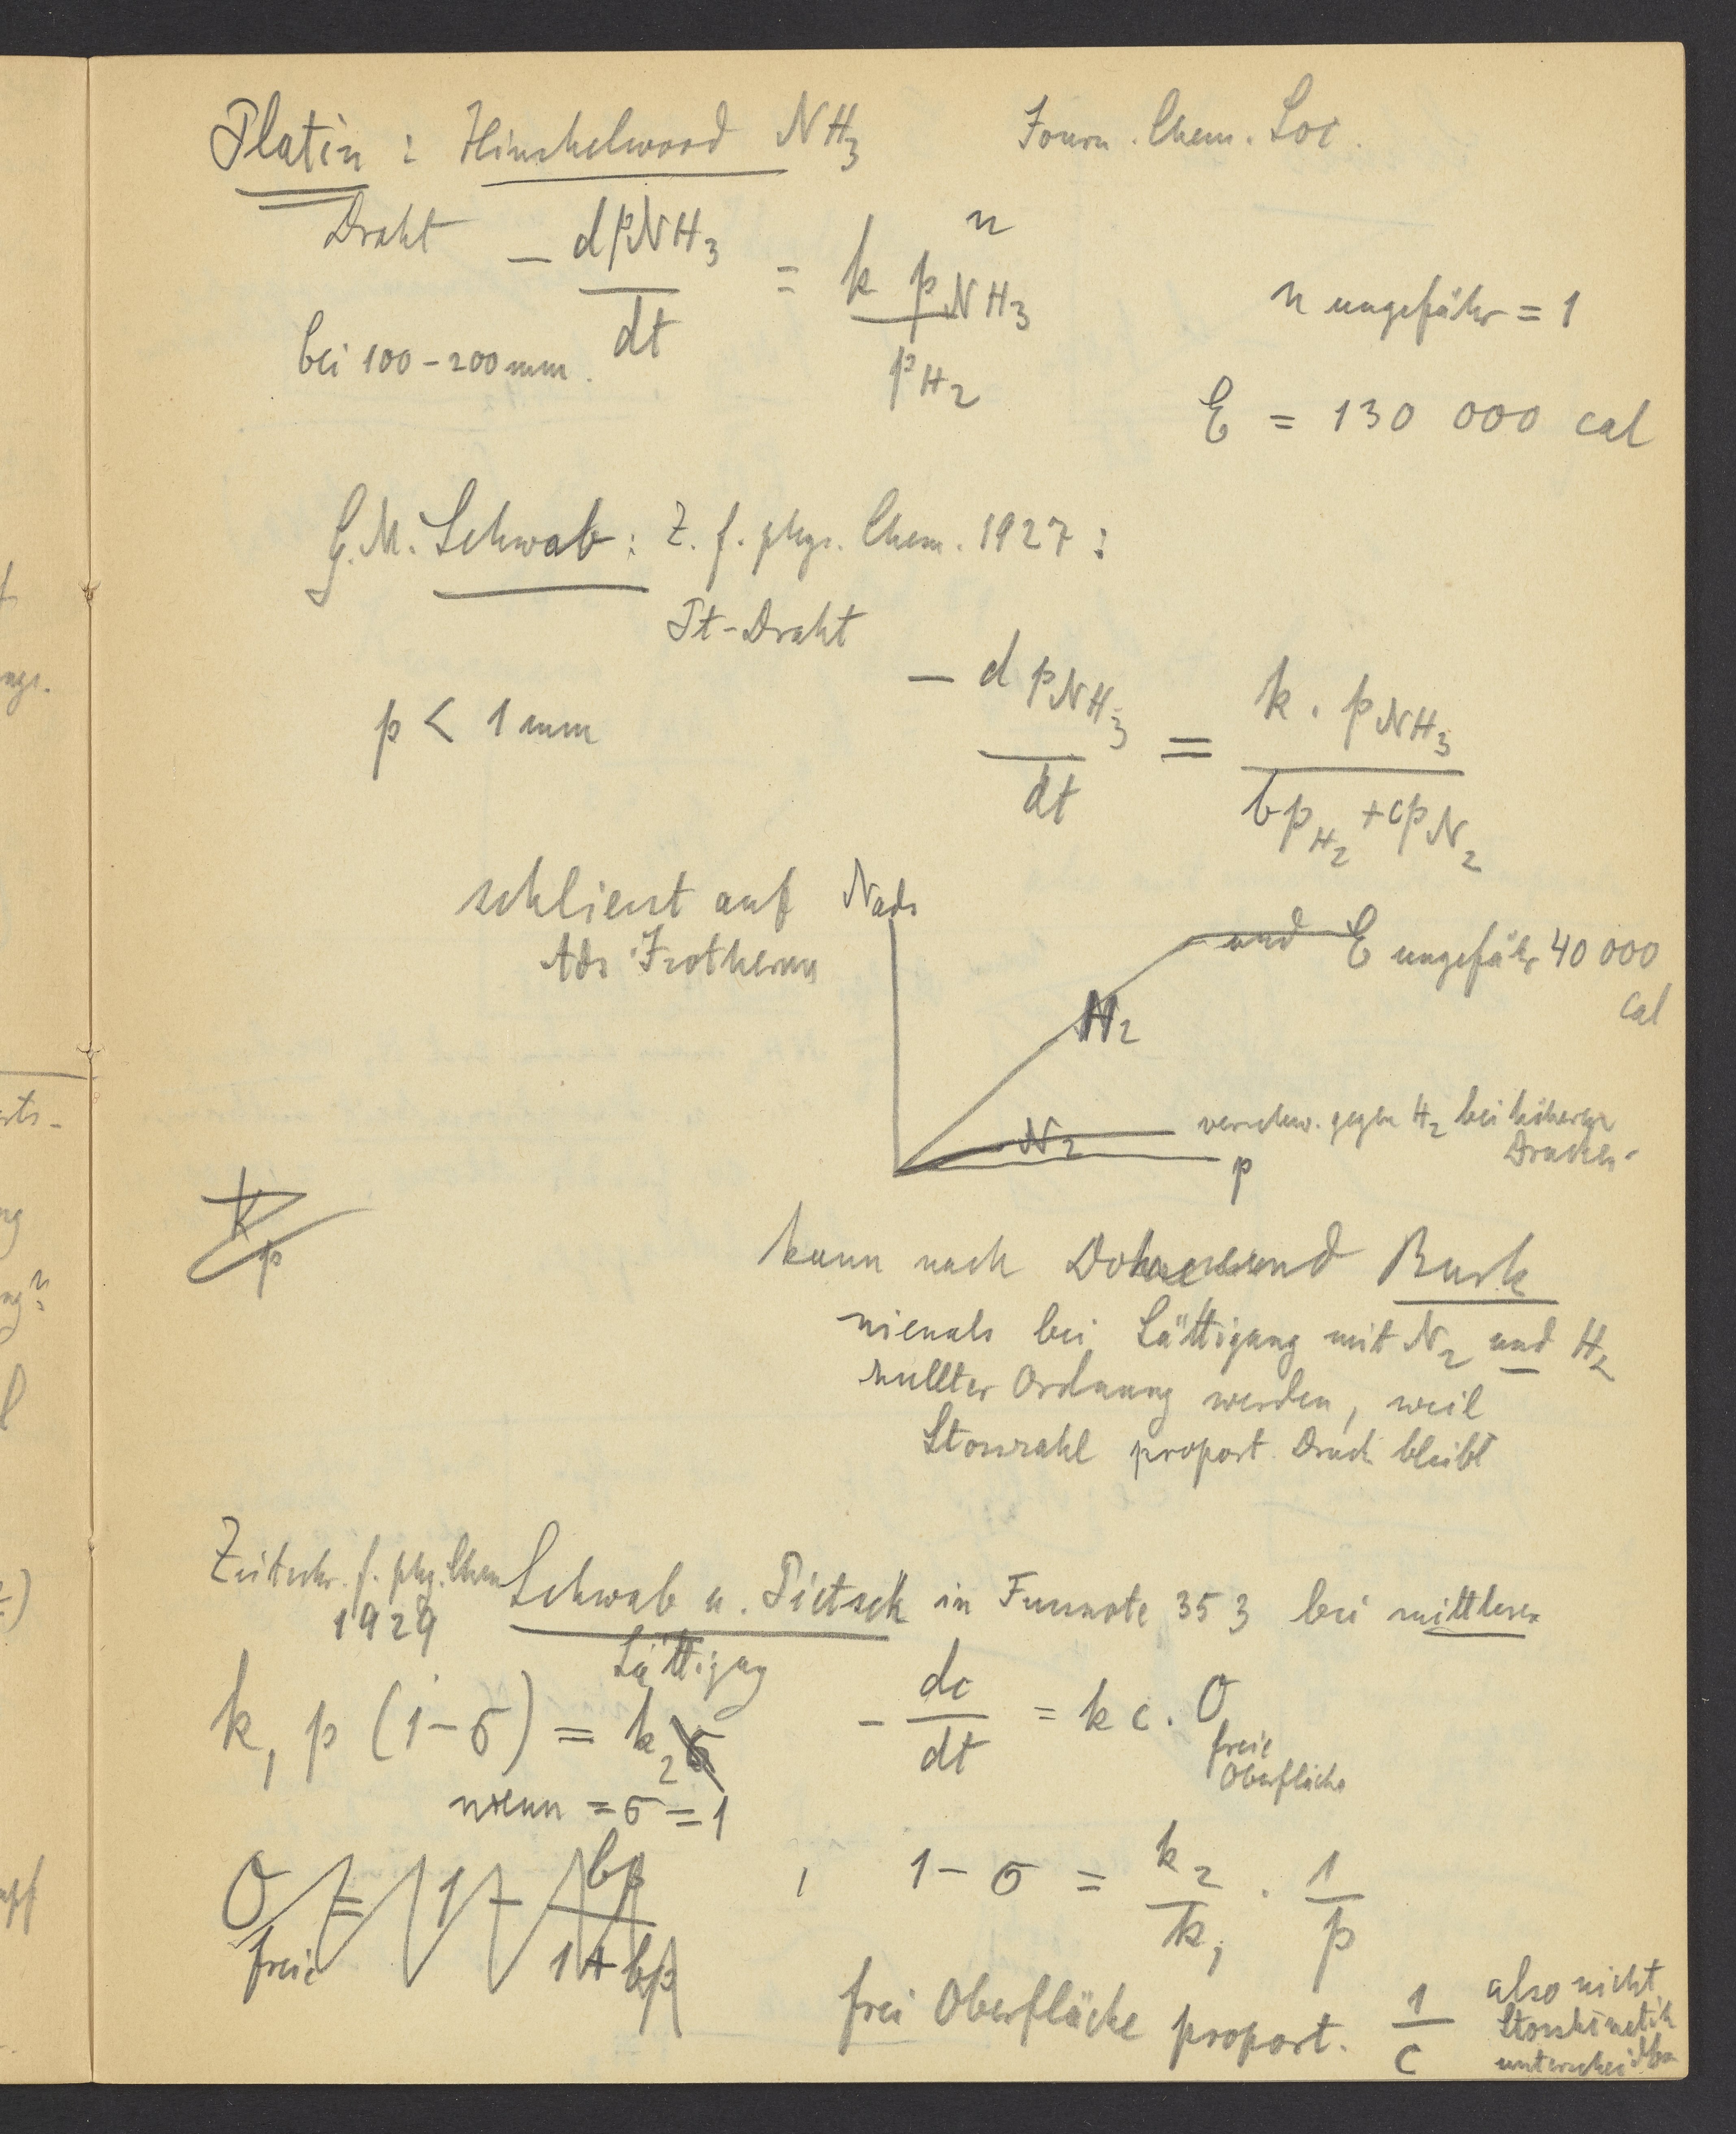 Platin : Hinshelwood NH3 Journ. Chem. Soc.
Draht - dpNH3 / dt = k pNH3^n / pH2
n ungefähr = 1
bei 100-200 mm.
E = 130 000 cal
G.M. Schwab: Z. f. phys. Chem. 1927:
Pt-Draht
p < 1 mm
- d pNH3 / dt = k · pNH3 / bpH2 + cpN2
schliesst auf
Ads Isotherme
Nads
und E ungefähr 40 000
cal
H2
N2
p
verschw. gegen H2 bei höheren
Drucken.
K
p
kann nach Burk
niemals bei Sättigung mit N2 und H2
nullter Ordnung werden, weil
Stosszahl proport. Druck bleibt
Zeitschr. f. phy. Chem
1929
Schwab u. Pietsch in Fussnote 353 bei mittlerer
Sättigung
k1 p (1-σ) = k2 σ
wenn = σ = 1
- dc / dt = k c · O
freie
Oberfläche
O freie = 1 - bp / 1 + bp
, 1 - σ = k2 / k1 · 1 / p
frei Oberfläche proport. 1 / c
also nicht
Stosskinetik
unterscheidba